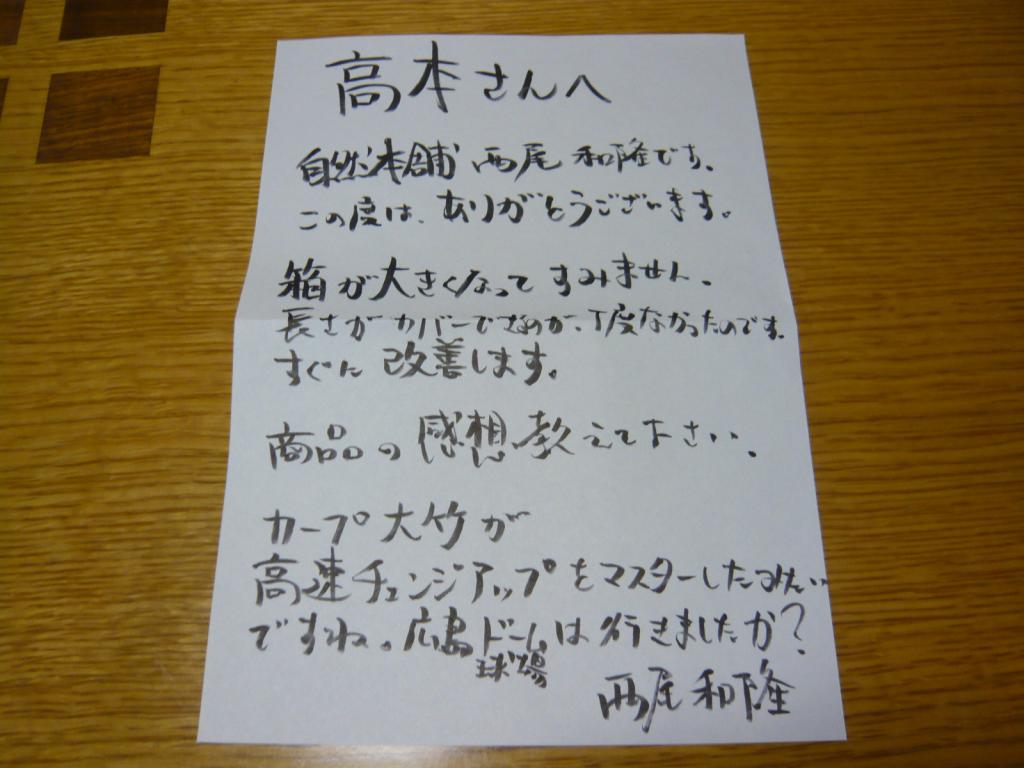 高本さんへ
自然本舗 西尾和隆です。
この度は、ありがとうございます。
箱が大きくなってすみません。
長さがカバーできるのが、丁度なかったのです。
すぐに改善します。
商品の感想教えて下さい。
カープ大竹が
高速チェンジアップをマスターしたみたい
ですね。広島ドームは行きましたか?
球場
西尾和隆